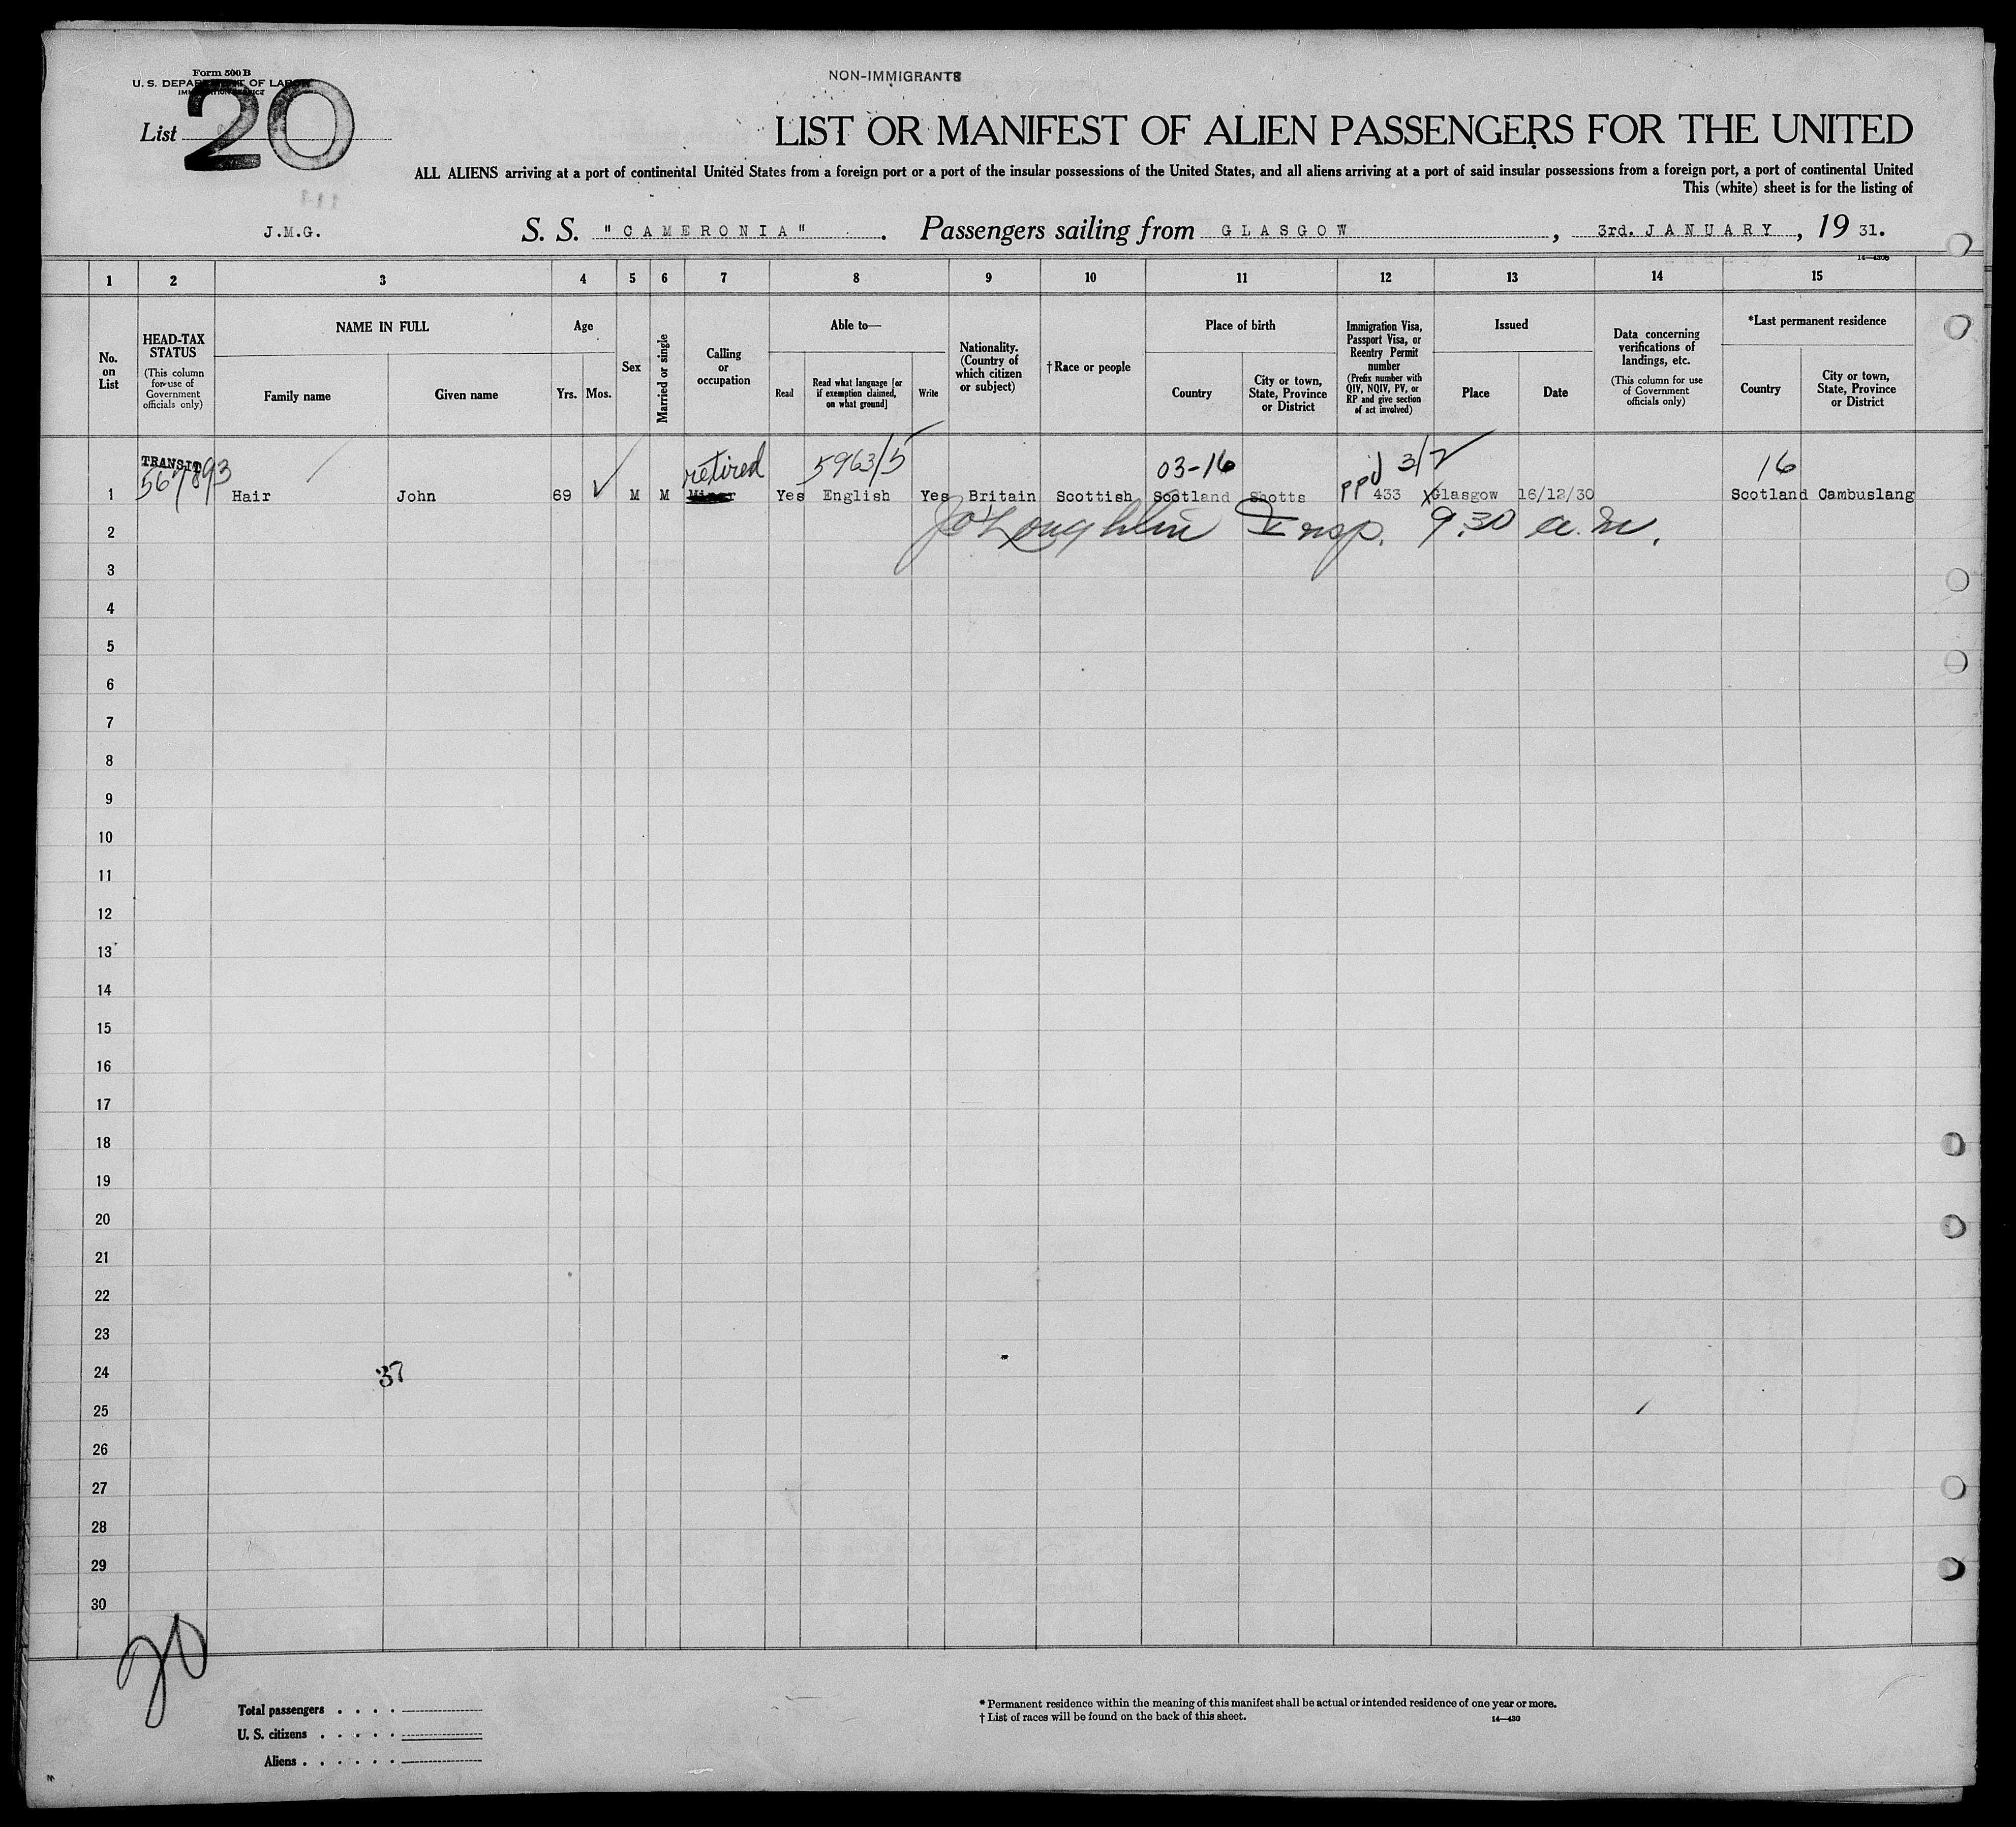 Form 500 B
U. S. DEPARTMENT OF LABOR
IMMIGRATION SERVICE
NON-IMMIGRANTS
List 20
LIST OR MANIFEST OF ALIEN PASSENGERS FOR THE UNITED
ALL ALIENS arriving at a port of continental United States from a foreign port or a port of the insular possessions of the United States, and all aliens arriving at a port of said insular possessions from a foreign port, a port of continental United
This (white) sheet is for the listing of
J.M.G. S. S. "CAMERONIA". Passengers sailing from GLASGOW, 3rd. JANUARY, 19 31.
1 2 3 4 5 6 7 8 9 10 11 12 13 14 15
No. on List
HEAD-TAX STATUS (This column for use of Government officials only)
NAME IN FULL
Family name Given name
Age
Yrs. Mos.
Sex
Married or single
Calling or occupation
Able to—
Read Read what language [or if exemption claimed, on what ground] Write
Nationality. (Country of which citizen or subject)
† Race or people
Place of birth
Country City or town, State, Province or District
Immigration Visa, Passport Visa, or Reentry Permit number (Prefix number with QIV, NQIV, PV, or RP and give section of act involved)
Issued
Place Date
Data concerning verifications of landings, etc. (This column for use of Government officials only)
*Last permanent residence
Country City or town, State, Province or District
TRANSIT retired 5963/5 03-16 ppd 3/2 16
567893
1 Hair John 69 M M Miner Yes English Yes Britain Scottish Scotland Shotts 433 Glasgow 16/12/30 Scotland Cambuslang
2 J O'Loughlin Insp. 9.30 a.m.
3
4
5
6
7
8
9
10
11
12
13
14
15
16
17
18
19
20
21
22
23
24 37
25
26
27
28
29
30
20
Total passengers . . . .
U. S. citizens . . . . .
Aliens . . . . . .
* Permanent residence within the meaning of this manifest shall be actual or intended residence of one year or more.
† List of races will be found on the back of this sheet. 14—430